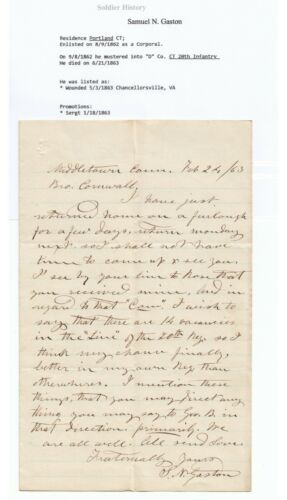 Soldier History
Samuel N. Gaston
Residence Portland CT;
Enlisted on 8/9/1862 as a Corporal.
On 9/8/1862 he mustered into "D" Co. CT 20th Infantry
He died on 6/21/1863
He was listed as:
* Wounded 5/3/1863 Chancellorsville, VA
Promotions:
* Sergt 1/18/1863
Middletown Conn. Feb 24/63
Bro. Cornwall,
I have just
returned home on a furlough
for a few days, return monday
next so I shall not have
time to come up & see you.
I see by your line to
that
you received mine, and in
regard to that "Com". I wish to
say that there are 14 vacancies
in the "Line" of the 20th Reg. so I
think my chance finally,
better in my own Reg than
otherwheres. I mention these
things, that you may direct any
thing you may say to Gov. B. in
that direction primarily. We
are all well. All send love.
Fraternally Yours
S. N. Gaston